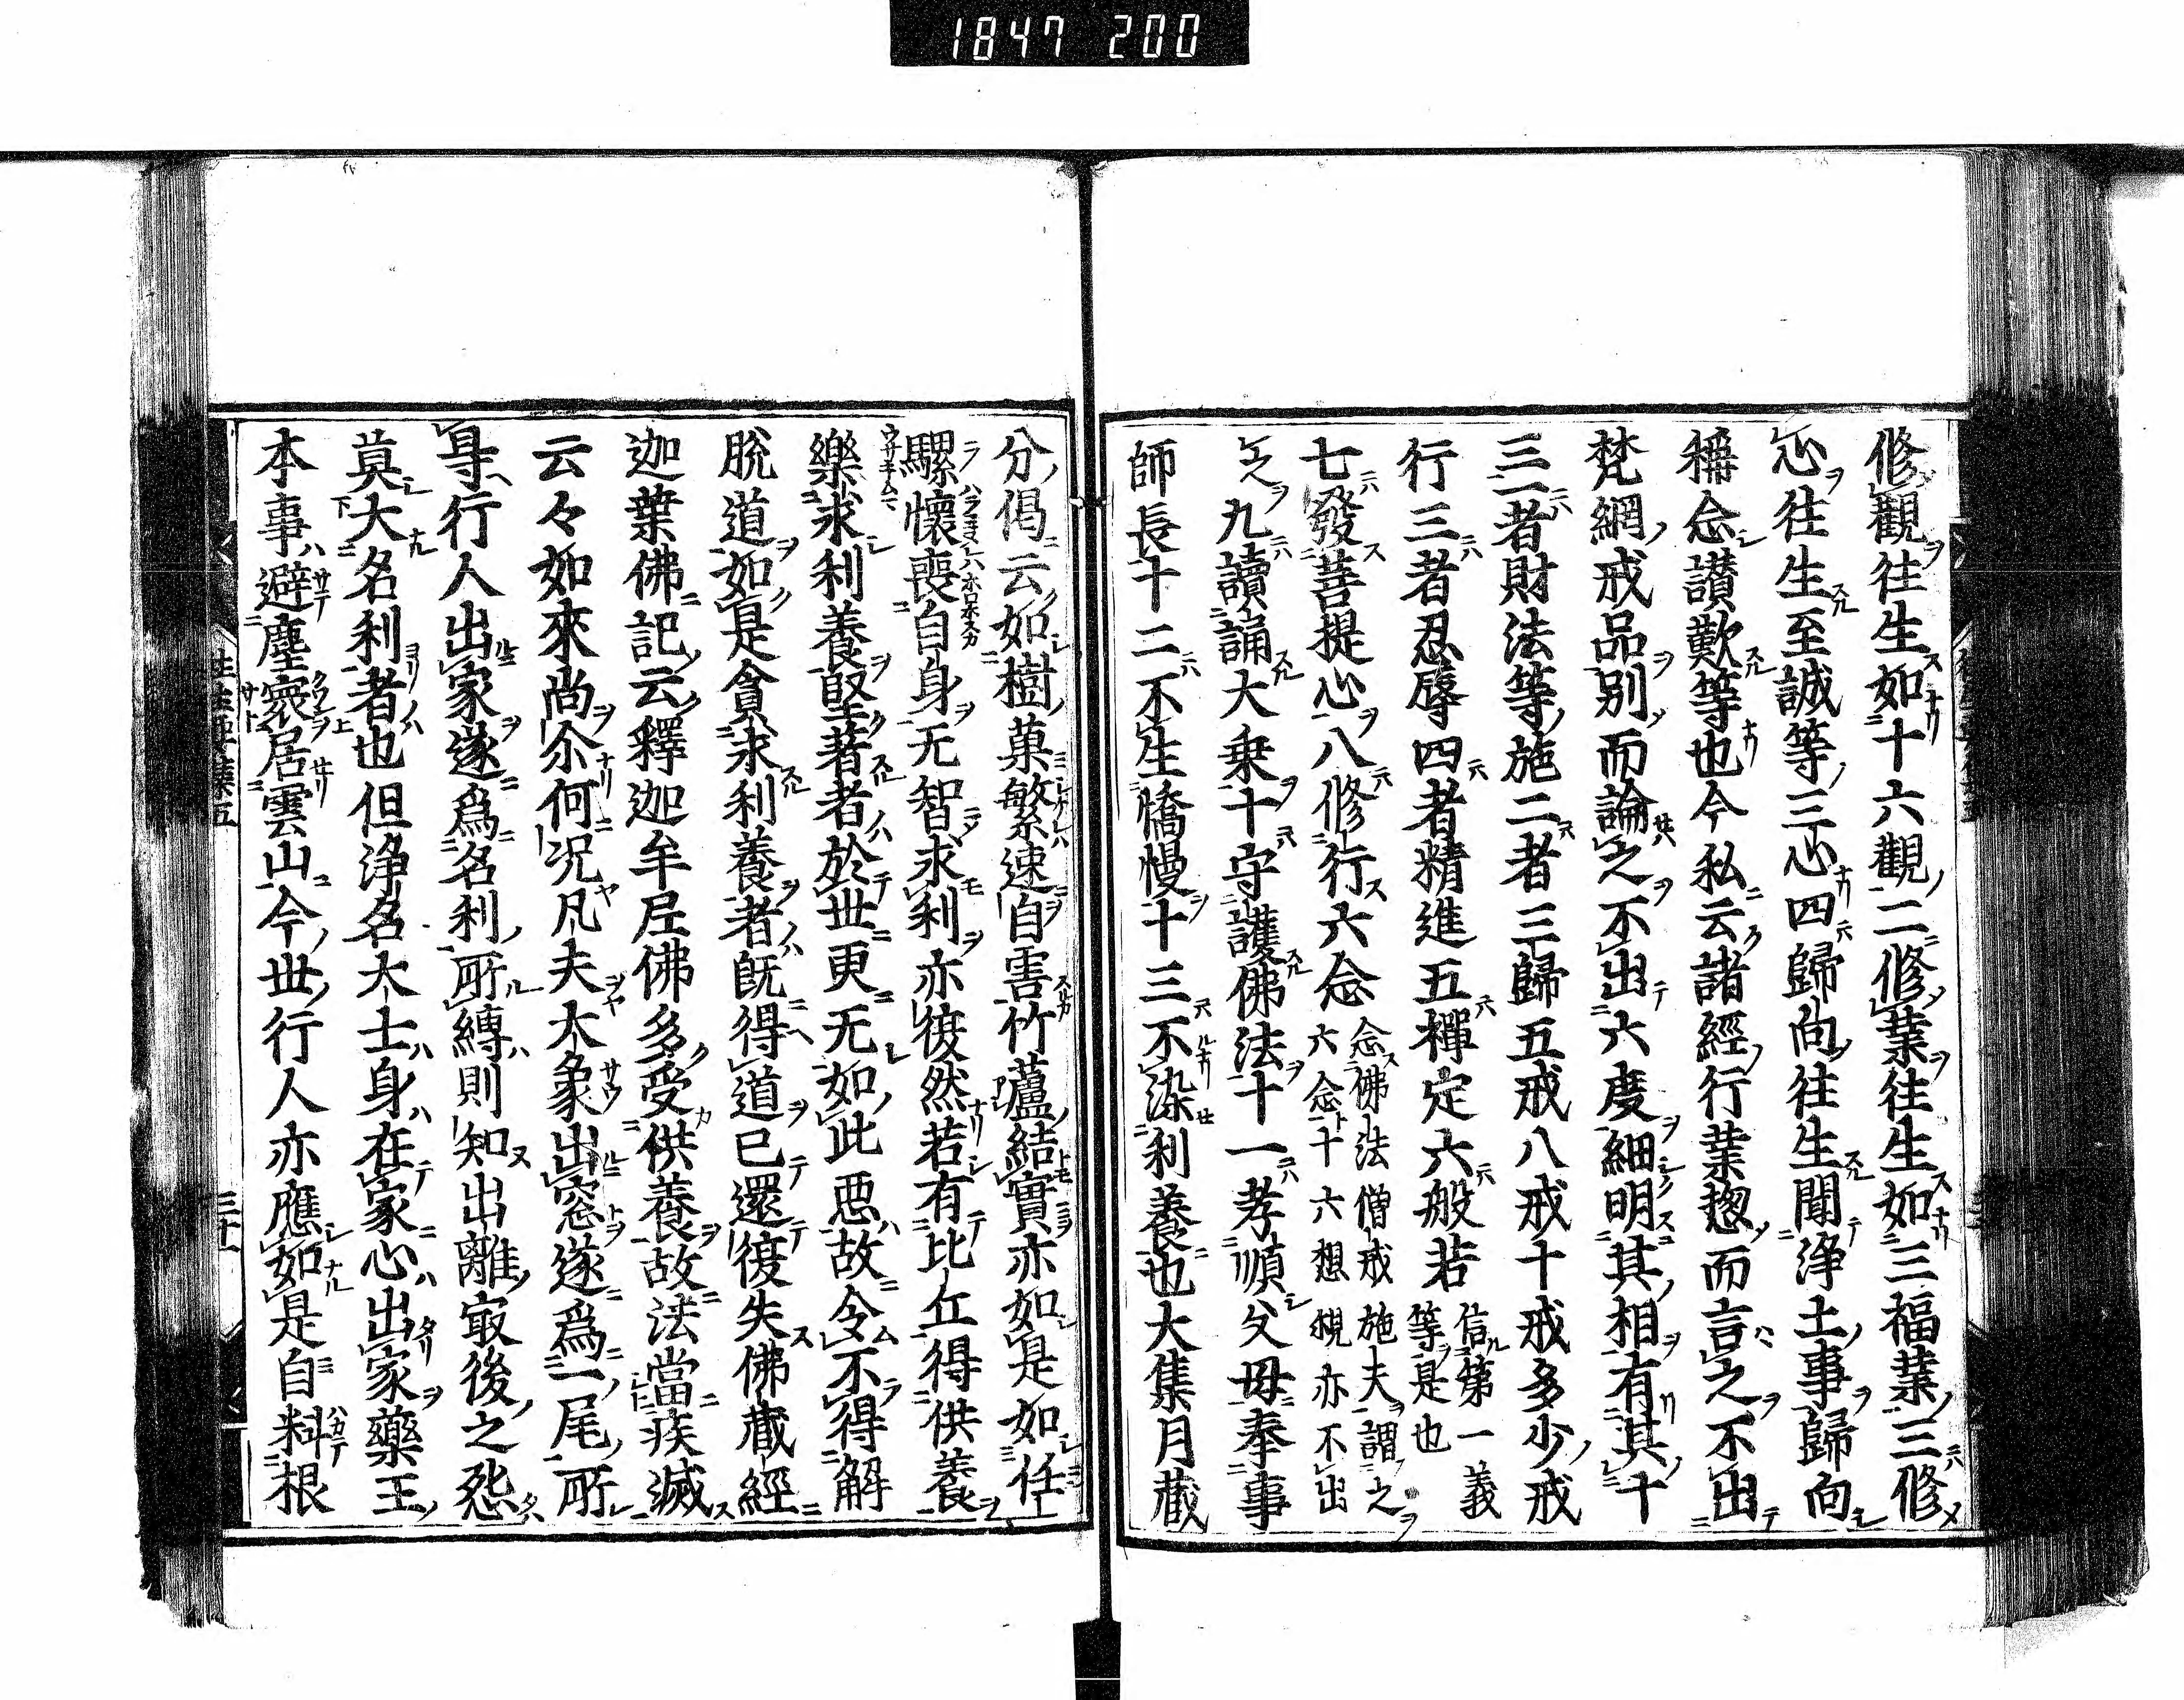 1847 200
修觀往生如十六觀二修業往生如三福業三修
心往生至誠等三心四歸向往生聞浄土事歸向
稱念讃歎等也今私云諸經行業惣而言之不出
梵網戒品別而論之不出六度細明其相有其十
三一者財法等施二者三歸五戒八戒十戒多少戒
行三者忍辱四者精進五禪定六般若信第一義
等是也
七發菩提心八修行六念念佛法僧戒施夫謂之
六念十六想觀亦不出
之九讀誦大乗十守護佛法十一孝順父母奉事
師長十二不生憍慢十三不染利養也大集月蔵
分偈云如樹菓繁速自害竹蘆結實亦如是如任
騾懷喪自身无智求利亦復然若有比丘得供養
樂求利養堅著者於世更无如此悪故令不得解
脱道如是貪求利養者既得道已還復失佛蔵經
迦葉佛記云釋迦牟尼佛多受供養故法當疾滅
云々如來尚尒何況凡夫大象出窓遂爲一尾所
㝵行人出家遂爲名利所縛則知出離冣後之怨
莫大名利者也但浄名大士身在家心出家藥王
本事避塵寰居雲山今世行人亦應如是自料根